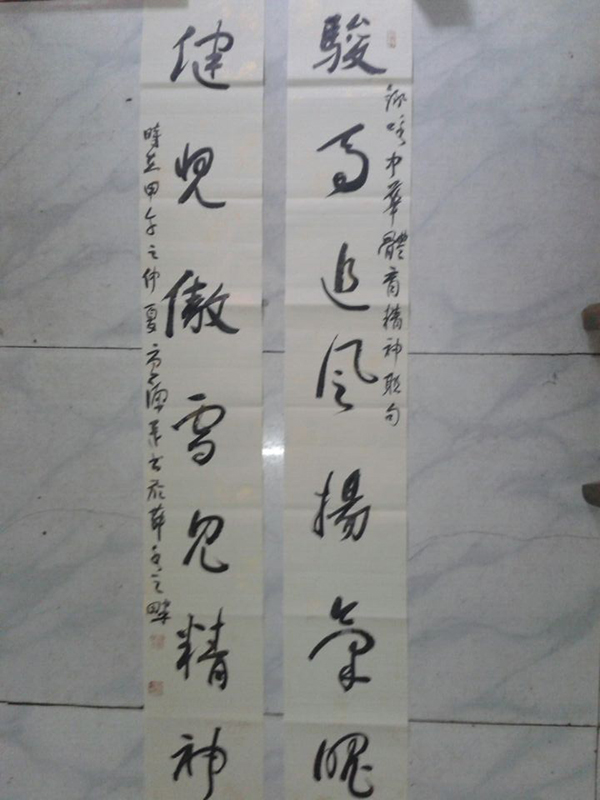 駿馬追風揚氣魄
詠中華體育精神聯句
健兒傲雪見精神
時在甲午之仲夏書於之畔